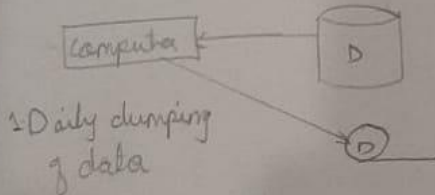 Computer
D
1 Daily dumping
of data
D